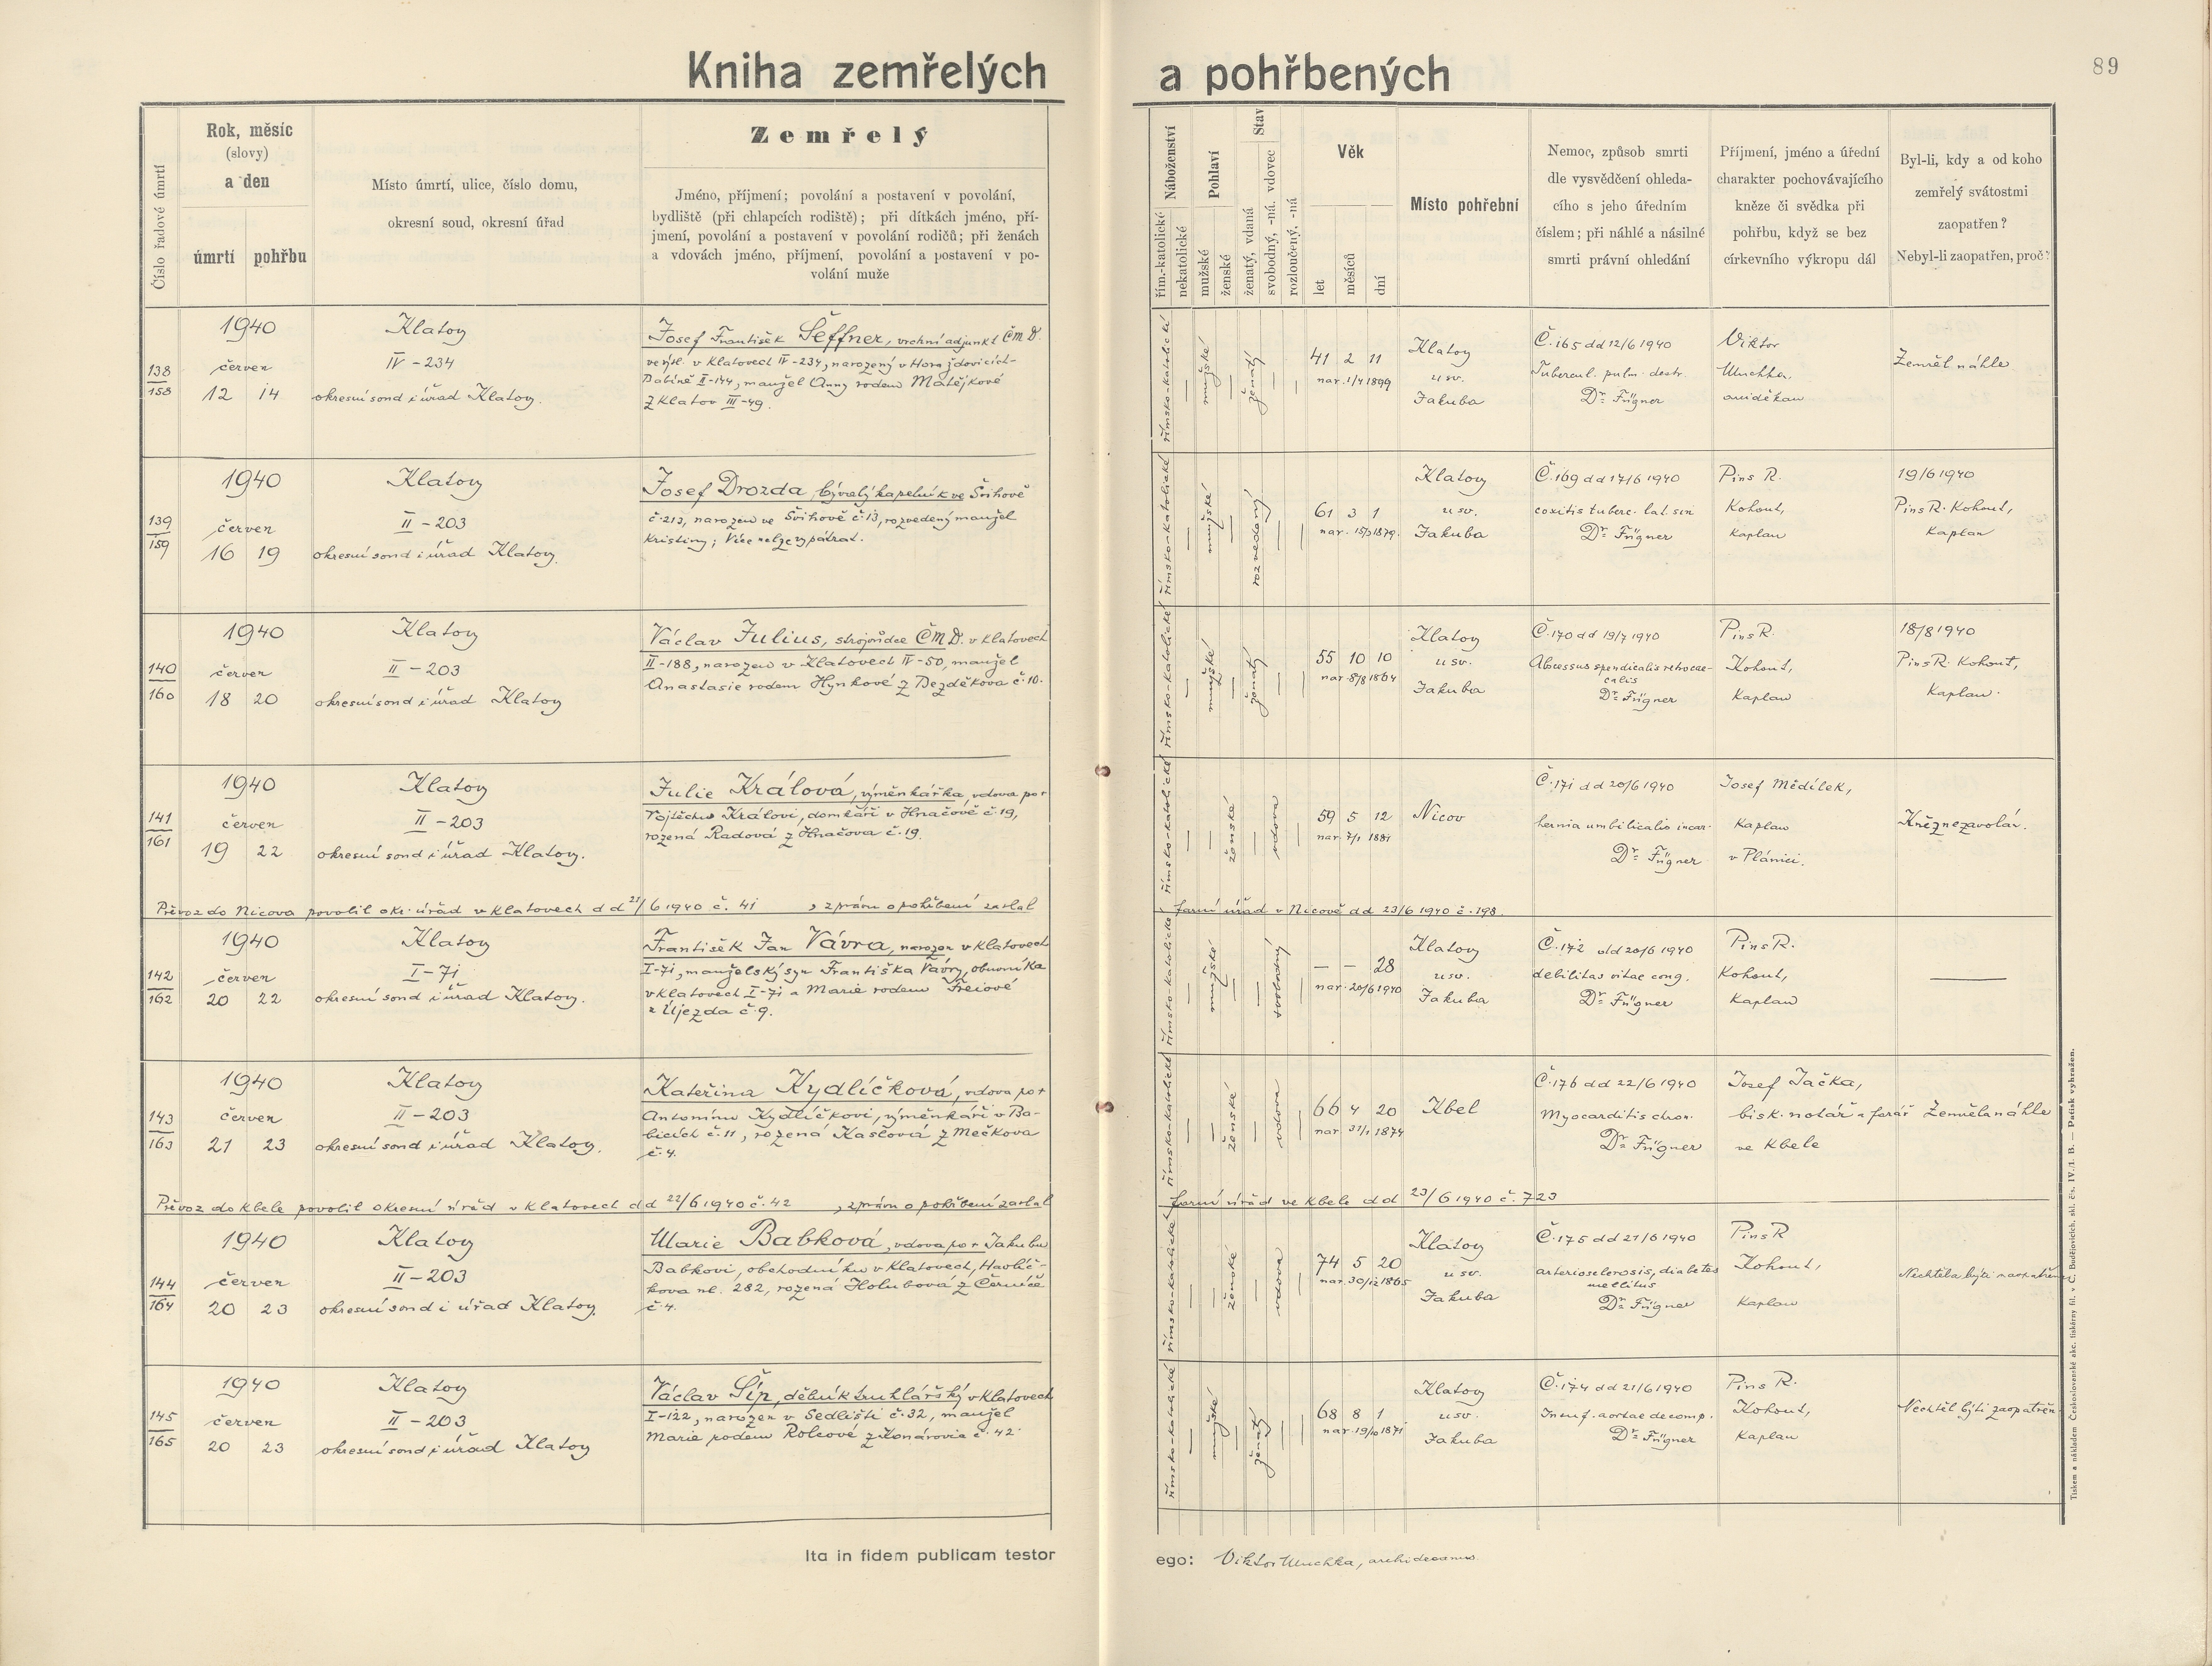 Kniha zemřelých a pohřbených
89
Číslo řadové úmrtí
Rok, měsíc
(slovy)
a den
úmrtí
pohřbu
Místo úmrtí, ulice, číslo domu,
okresní soud, okresní úřad
Zemřelý
Jméno, příjmení; povolání a postavení v povolání,
bydliště (při chlapcích rodiště); při dítkách jméno, pří-
jmení, povolání a postavení v povolání rodičů; při ženách
a vdovách jméno, příjmení, povolání a postavení v po-
volání muže
Náboženství
řím.-katolické
nekatolické
Pohlaví
mužské
ženské
Stav
ženatý, vdaná
svobodný, -ná, vdovec
rozloučený, -ná
Věk
let
měsíců
dní
Místo pohřební
Nemoc, způsob smrti
dle vysvědčení ohleda-
cího s jeho úředním
číslem; při náhlé a násilné
smrti právní ohledání
Příjmení, jméno a úřední
charakter pochovávajícího
kněze či svědka při
pohřbu, když se bez
církevního výkropu dál
Byl-li, kdy a od koho
zemřelý svátostmi
zaopatřen?
Nebyl-li zaopatřen, proč?
138
158
1940
červen
12 14
Klatovy
IV - 234
okresní soud i úřad Klatovy.
Josef František Šeffner, vrchní adjunkt ČMD.
ve výsl. v Klatovech IV-234, narozený v Horažďovicích-
Babíně II-144, manžel Anny rodem Matějkové
z Klatov III-49.
římsko-katolické
—
mužské
—
ženatý
—
—
41 2 11
nar. 1/4 1899
Klatovy
u sv.
Jakuba
Č. 165 dd 12/6 1940
Tubercul. pulm. destr.
Dr. Fügner
Viktor
Muchka,
arciděkan
Zemřel náhle
139
159
1940
červen
16 19
Klatovy
II - 203
okresní soud i úřad Klatovy.
Josef Drozda, bývalý kapelník ve Švihově
č. 213, narozen ve Švihově č. 13, rozvedený manžel
Kristiny; Více nelze vypátrat.
římsko-katolické
—
mužské
—
rozvedený
—
—
61 3 1
nar. 15/3 1879.
Klatovy
u sv.
Jakuba
Č. 169 dd 17/6 1940
coxitis tuberc. lat. sin
Dr. Fügner
Pius R.
Kohout,
kaplan
19/6 1940
Pius R. Kohout,
kaplan
140
160
1940
červen
18 20
Klatovy
II - 203
okresní soud i úřad Klatovy
Václav Julius, strojvůdce ČMD. v Klatovech
II-188, narozen v Klatovech IV-50, manžel
Anastasie rodem Hynkové z Bezděkova č. 10.
římsko-katolické
—
mužské
—
ženatý
—
—
55 10 10
nar. 8/8 1864
Klatovy
u sv.
Jakuba
Č. 170 dd 19/7 1940
Abcessus apendicalis retrocae-
calis
Dr. Fügner
Pius R.
Kohout,
kaplan
18/8 1940
Pius R. Kohout,
Kaplan.
141
161
1940
červen
19 22
Klatovy
II - 203
okresní soud i úřad Klatovy.
Julie Králová, výměnkářka, vdova po †
Vojtěchu Královi, domkáři v Hnačově č. 19,
rozená Radová z Hnačova č. 19.
římsko-katolické
—
—
ženské
—
vdova
—
59 5 12
nar. 7/1 1881
Nicov
Č. 171 dd 20/6 1940
hernia umbilicalis incar.
Dr. Fügner
Josef Mědílek,
kaplan
v Plánici.
Kněz nezavolán.
Převoz do Nicova povolil okr. úřad v Klatovech dd 21/6 1940 č. 41, zprávu o pohřbení zaslal farní úřad v Nicově dd 23/6 1940 č. 198.
142
162
1940
červen
20 22
Klatovy
I - 71
okresní soud i úřad Klatovy.
František Jan Vávra, narozen v Klatovech
I-71, manželský syn Františka Vávry, obuvníka
v Klatovech I-71 a Marie rodem Freiové
z Újezda č. 9.
římsko-katolické
—
mužské
—
—
svobodný
—
— — 28
nar. 20/6 1940
Klatovy
u sv.
Jakuba
Č. 172 dd 20/6 1940
debilitas vitae cong.
Dr. Fügner
Pius R.
Kohout,
Kaplan
—
143
163
1940
červen
21 23
Klatovy
II - 203
okresní soud i úřad Klatovy.
Kateřina Kydlíčková, vdova po †
Antonínu Kydlíčkovi, výměnkáři v Ba-
bicích č. 11, rozená Kaslová z Mečkova
č. 4.
římsko-katolické
—
—
ženské
—
vdova
—
66 4 20
nar. 31/1 1874
Kbel
Č. 176 dd 22/6 1940
Myocarditis chron.
Dr. Fügner
Josef Jačka,
bisk. notář a farář
ve Kbele
Zemřela náhle
Převoz do Kbele povolil okresní úřad v Klatovech dd 22/6 1940 č. 42, zprávu o pohřbení zaslal farní úřad ve Kbele dd 23/6 1940 č. 723
144
164
1940
červen
20 23
Klatovy
II - 203
okresní soud i úřad Klatovy.
Marie Babková, vdova po † Jakubu
Babkovi, obchodníku v Klatovech, Havlíč-
kova ul. 282, rozená Holubová z Černíče
č. 4.
římsko-katolické
—
—
ženské
—
vdova
—
74 5 20
nar. 30/12 1865
Klatovy
u sv.
Jakuba
Č. 175 dd 21/6 1940
arteriosclerosis, diabetes
mellitus
Dr. Fügner
Pius R
Kohout,
kaplan
Nechtěla býti zaopatřena
145
165
1940
červen
20 23
Klatovy
II - 203
okresní soud i úřad Klatovy
Václav Šíp, dělník truhlářský v Klatovech
I-122, narozen v Sedlišti č. 32, manžel
Marie rodem Rolcové z č. 42.
římsko-katolické
—
mužské
—
ženatý
—
—
68 8 1
nar. 19/10 1871
Klatovy
u sv.
Jakuba
Č. 174 dd 21/6 1940
Insuf. aortae decomp.
Dr. Fügner
Pius R.
Kohout,
Kaplan
Nechtěl býti zaopatřen
Ita in fidem publicam testor ego: Viktor Muchka, archidecanus.
Tiskem a nákladem Československé akc. tiskárny fil. v Č. Budějovicích, skl. čís. IV./1. B. — Patisk vyhražen.